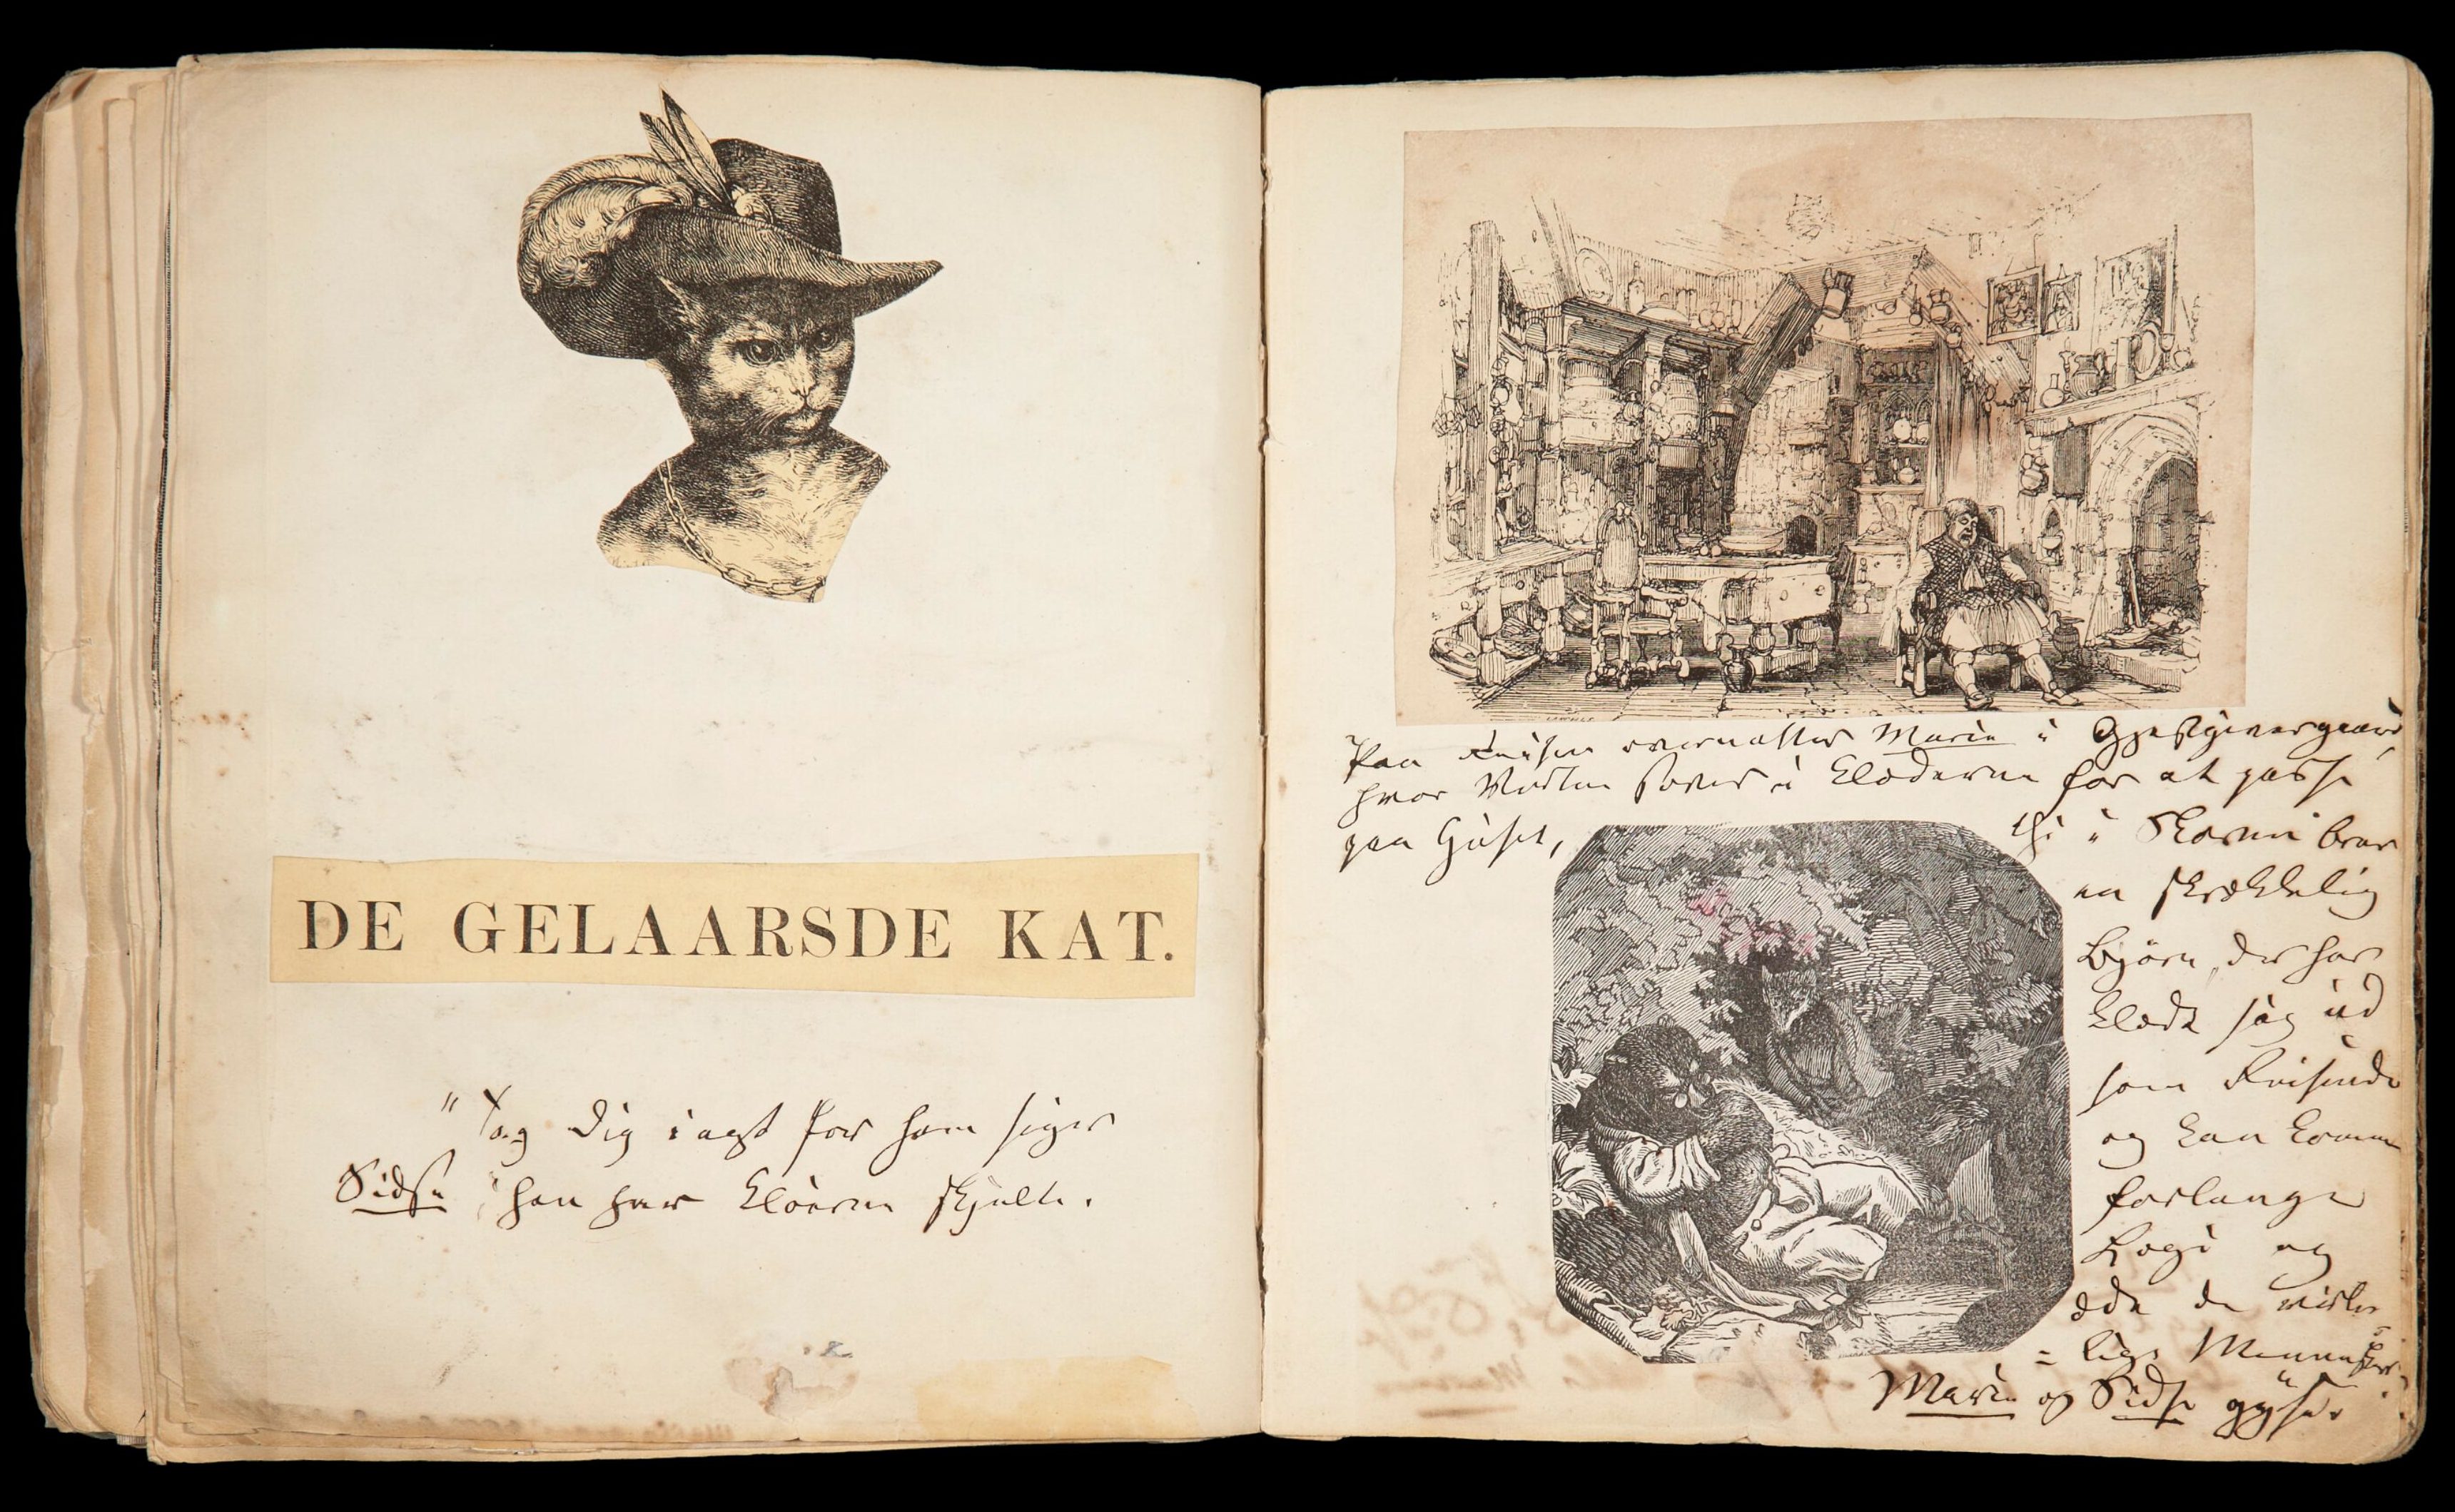 DE GELAARSDE KAT.
"Tag Dig iagt for ham siger
Sidse, han har Kløerne skjulte.
Paa Reisen overnatter Marie i Gjæstgivergaard
hvor Værten sover i Klæderne for at passe
paa Huset,
thi i Skoven boer
en skrækkelig
Bjørn, der har
klædt sig ud
som Reisende
og kan komme
forlange
Logi og
æde de virke
= lige Mennesker.
Marie og Sidse gyse.